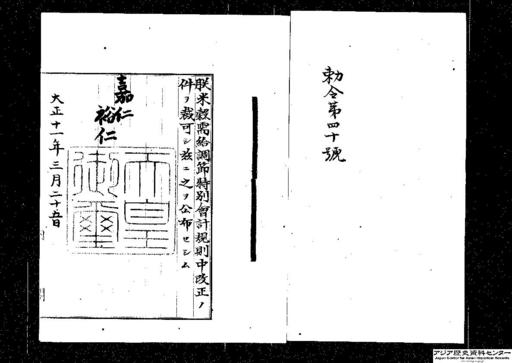 勅令第四十號
朕米穀需給調節特別會計規則中改正ノ
件ヲ裁可シ玆ニ之ヲ公布セシム
嘉仁
裕仁
天皇
御璽
大正十一年三月二十五日
アジア歴史資料センター
Japan Center for Asian Historical Records